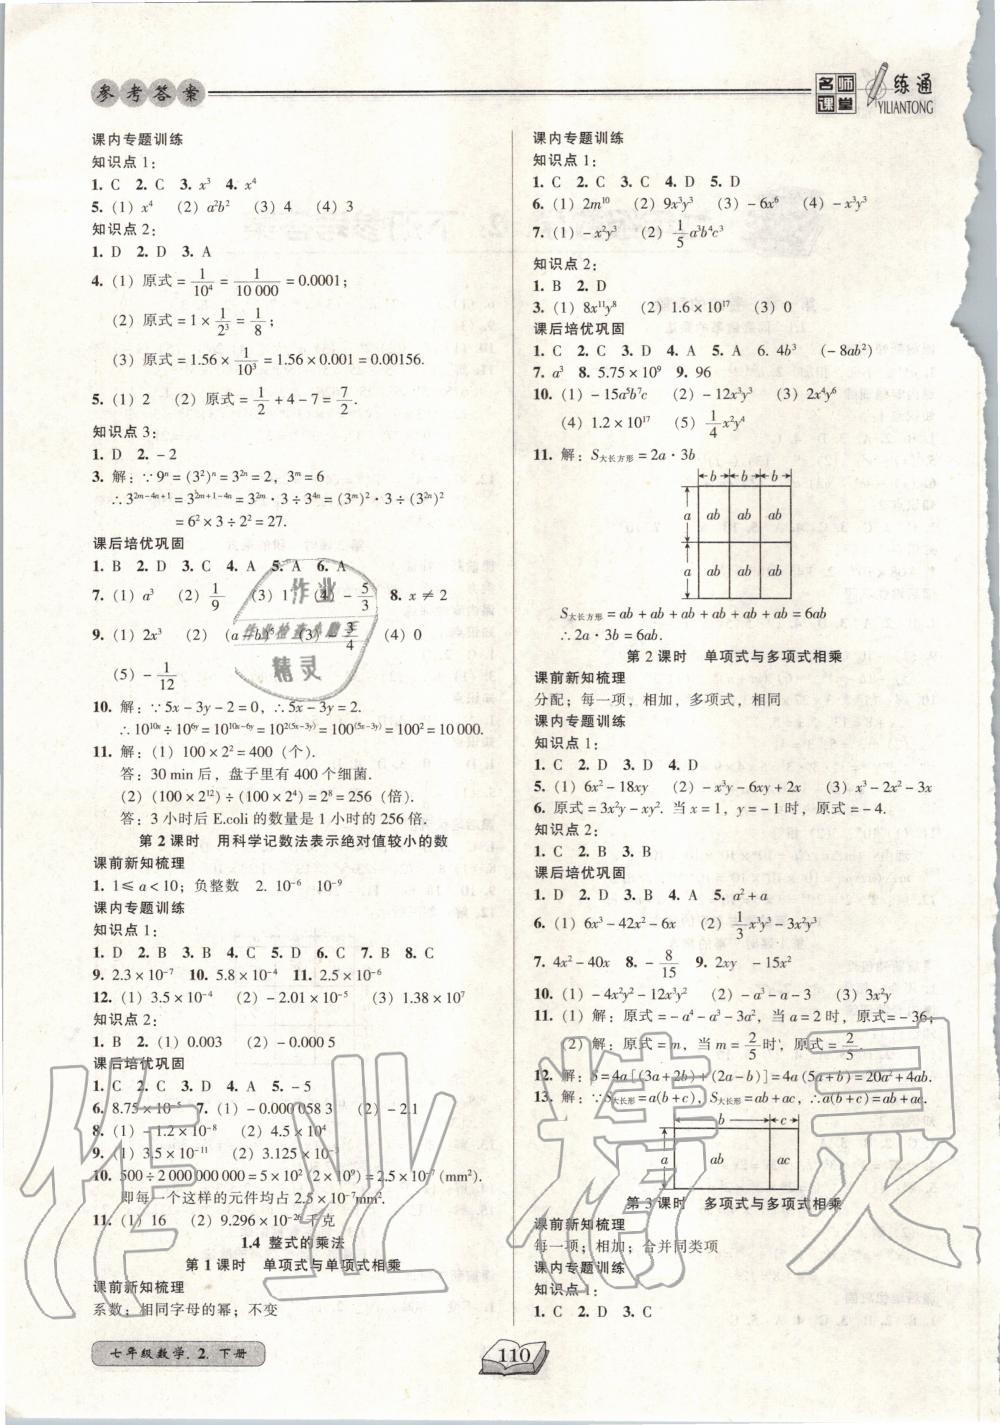 参考答案
名师课堂 一练通
YILIANTONG
课内专题训练
知识点1：
1. C 2. C 3. x³ 4. x⁴
5. (1) x⁴ (2) a²b² (3) 4 (4) 3
知识点2：
1. D 2. D 3. A
4. (1) 原式 = 1/10⁴ = 1/10 000 = 0.0001;
(2) 原式 = 1 × 1/2³ = 1/8;
(3) 原式 = 1.56 × 1/10³ = 1.56 × 0.001 = 0.00156.
5. (1) 2 (2) 原式 = 1/2 + 4 - 7 = 7/2.
知识点3：
1. D 2. -2
3. 解：∵9ⁿ = (3²)ⁿ = 3²ⁿ = 2, 3ᵐ = 6
∴3^(2m-4n+1) = 3^(2m+1-4n) = 3^(2m)·3÷3^(4n) = (3ᵐ)²·3÷(3²ⁿ)²
= 6² × 3 ÷ 2² = 27.
课后培优巩固
1. B 2. D 3. C 4. A 5. A 6. A
7. (1) a³ (2) 1/9 (3) 1 (4) -5/3 8. x ≠ 2
9. (1) 2x³ (2) (a-b)⁵ (3) -3/4 (4) 0
(5) -1/12
10. 解：∵5x-3y-2=0, ∴5x-3y=2.
∴10^(10x)÷10^(6y) = 10^(10x-6y) = 10^(2(5x-3y)) = 100^((5x-3y)) = 100² = 10 000.
11. 解：(1) 100 × 2² = 400 (个).
答：30 min后，盘子里有400个细菌.
(2) (100 × 2¹²) ÷ (100 × 2⁴) = 2⁸ = 256 (倍).
答：3小时后E.coli的数量是1小时的256倍.
第2课时 用科学记数法表示绝对值较小的数
课前新知梳理
1. 1≤a<10；负整数 2. 10⁻⁶ 10⁻⁹
课内专题训练
知识点1：
1. D 2. B 3. B 4. C 5. D 6. C 7. B 8. C
9. 2.3 × 10⁻⁷ 10. 5.8 × 10⁻⁴ 11. 2.5 × 10⁻⁶
12. (1) 3.5 × 10⁻⁴ (2) -2.01 × 10⁻⁵ (3) 1.38 × 10⁷
知识点2：
1. B 2. (1) 0.003 (2) -0.000 5
课后培优巩固
1. C 2. C 3. D 4. A 5. -5
6. 8.75 × 10⁻⁵ 7. (1) -0.000 058 3 (2) -2.1
8. (1) -1.2 × 10⁻⁸ (2) 4.5 × 10⁴
9. (1) 3.5 × 10⁻¹¹ (2) 3.125 × 10⁻³
10. 500÷2 000 000 000 = 5×10²÷(2×10⁹) = 2.5×10⁻⁷ (mm²).
即每一个这样的元件均占2.5×10⁻⁷mm².
11. (1) 16 (2) 9.296 × 10⁻²⁶千克
1.4 整式的乘法
第1课时 单项式与单项式相乘
课前新知梳理
系数；相同字母的幂；不变
课内专题训练
知识点1：
1. C 2. C 3. C 4. D 5. D
6. (1) 2m¹⁰ (2) 9x³y³ (3) -6x⁶ (4) -x³y³
7. (1) -x²y³ (2) 1/5a³b⁴c³
知识点2：
1. B 2. D
3. (1) 8x¹¹y⁸ (2) 1.6 × 10¹⁷ (3) 0
课后培优巩固
1. C 2. C 3. D 4. A 5. A 6. 4b³ (-8ab²)
7. a³ 8. 5.75 × 10⁹ 9. 96
10. (1) -15a⁵b⁷c (2) -12x³y³ (3) 2x⁴y⁶
(4) 1.2 × 10¹⁷ (5) 1/4x²y⁴
11. 解：S大长方形 = 2a·3b
b b b
a ab ab ab
a ab ab ab
S大长方形 = ab + ab + ab + ab + ab + ab = 6ab
∴2a·3b = 6ab.
第2课时 单项式与多项式相乘
课前新知梳理
分配；每一项，相加，多项式，相同
课内专题训练
知识点1：
1. C 2. D 3. D 4. D
5. (1) 6x²-18xy (2) -x³y-6xy+2x (3) x³-2x²-3x
6. 原式 = 3x²y-xy². 当x=1, y=-1时，原式=-4.
知识点2：
1. C 2. B 3. B
课后培优巩固
1. D 2. D 3. B 4. A 5. a²+a
6. (1) 6x³-42x²-6x (2) 1/3x³y³-3x²y³
7. 4x²-40x 8. -8/15 9. 2xy -15x²
10. (1) -4x²y²-12x³y² (2) -a³-a-3 (3) 3x²y
11. (1) 解：原式=-a⁴-a³-3a²，当a=2时，原式=-36;
(2) 解：原式=m，当m=2/5时，原式=2/5.
12. 解：S=4a[(3a+2b)+(2a-b)]=4a(5a+b)=20a²+4ab.
13. 解：∵S大长形=a(b+c), S大长形=ab+ac, ∴a(b+c)=ab+ac.
b c
a ab ac
第3课时 多项式与多项式相乘
课前新知梳理
每一项；相加；合并同类项
课内专题训练
知识点1：
1. C 2. D 3. C
七年级数学.2.下册
110
作业
作业检查小助手
精灵
作业精灵